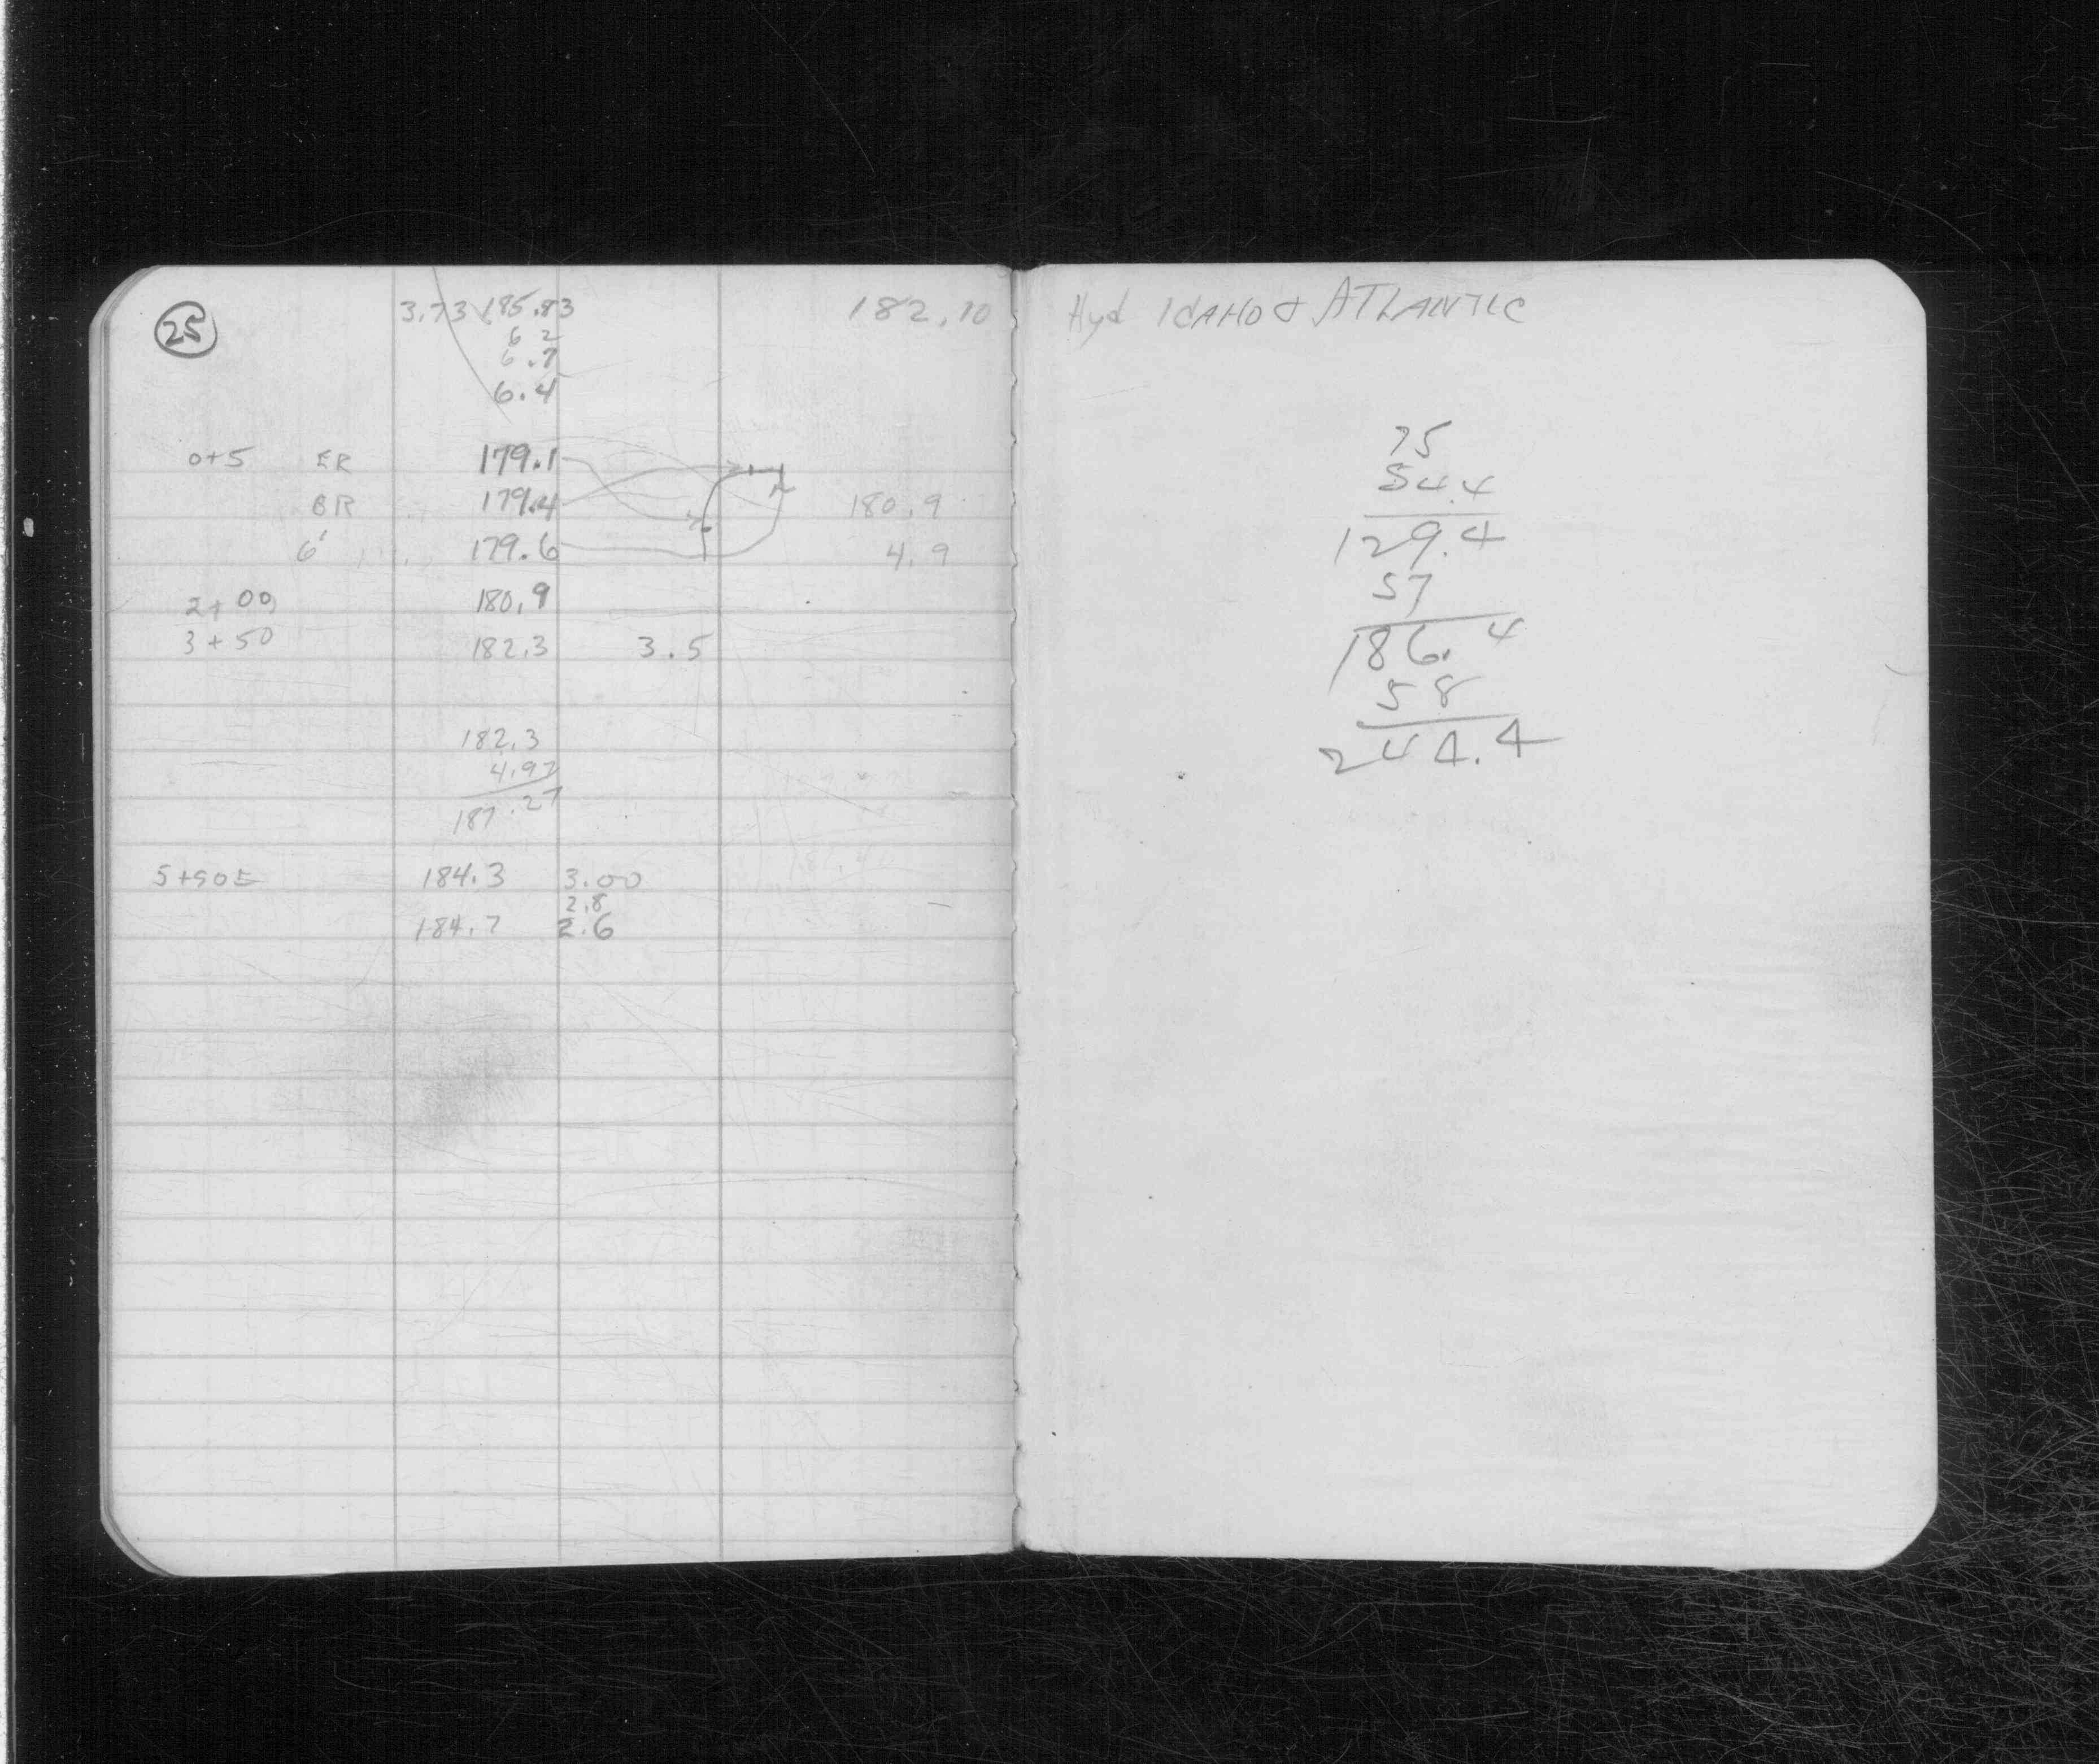 25 3.73 185.83 182.10
6.2
6.7
6.4
0+5 ER 179.1
BR 179.4 180.9
6' 179.6 4.9
2+00 180.9
3+50 182.3 3.5
182.3
4.97
187.27
5+50E 184.3 3.00
2.8
184.7 2.6
Hyd IDAHO & ATLANTIC
75
54.4
129.4
57
186.4
58
244.4